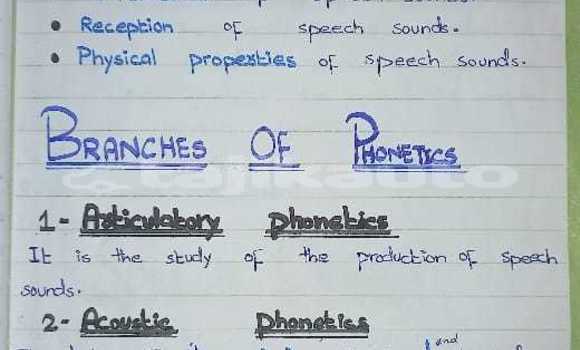 • Reception of speech sounds.
• Physical properties of speech sounds.
BRANCHES OF PHONETICS
1- Articulatory phonetics
It is the study of the production of speech
sounds.
2- Acoustic phonetics
and